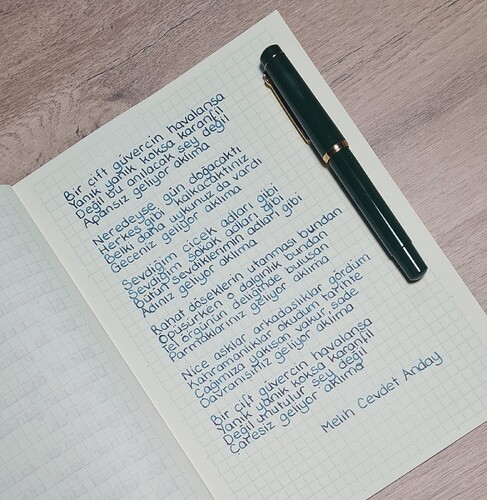 Bir çift güvercin havalansa
Yanık yanık koksa karanfil
Değil bu anılacak şey değil
Apansız geliyor aklıma
Neredeyse gün doğacaktı
Herkes gibi kalkacaktınız
Belki daha uykunuz da vardı
Geceniz geliyor aklıma
Sevdiğim çiçek adları gibi
Sevdiğim sokak adları gibi
Bütün sevdiklerimin adları gibi
Adınız geliyor aklıma
Rahat döşeklerin utanması bundan
Öpüşürken o dalgınlık bundan
Tel örgünün deliğinde buluşan
Parmaklarınız geliyor aklıma
Nice aşklar arkadaşlıklar gördüm
Kahramanlıklar okudum tarihte
Çağımıza yakışan vakur, sade
Davranışınız geliyor aklıma
Bir çift güvercin havalansa
Yanık yanık koksa karanfil
Değil unutulur şey değil
Çaresiz geliyor aklıma
Melih Cevdet Anday